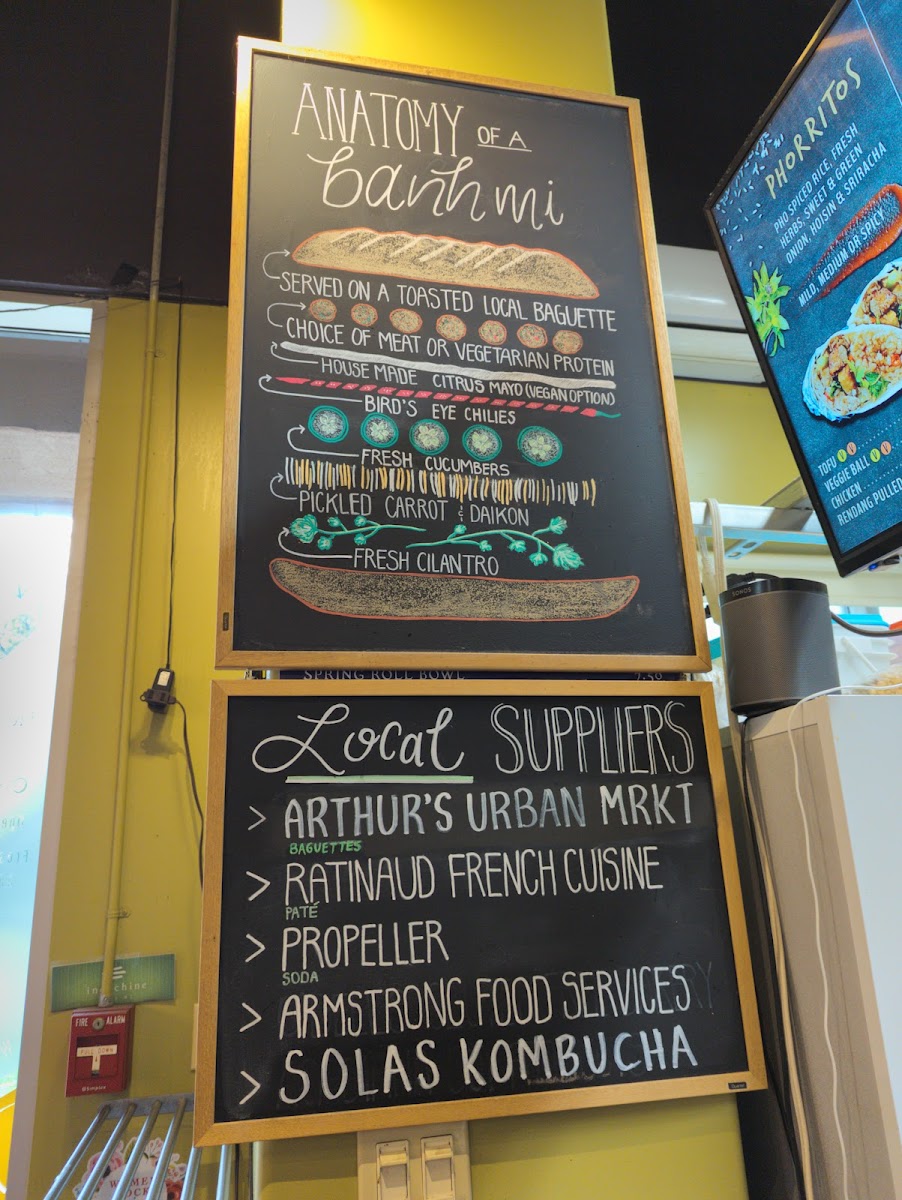 ANATOMY OF A
banh mi
SERVED ON A TOASTED LOCAL BAGUETTE
CHOICE OF MEAT OR VEGETARIAN PROTEIN
HOUSE MADE CITRUS MAYO (VEGAN OPTION)
BIRD'S EYE CHILIES
FRESH CUCUMBERS
PICKLED CARROT & DAIKON
FRESH CILANTRO
SPRING ROLL BOWL 7.50
Local SUPPLIERS
> ARTHUR'S URBAN MRKT
BAGUETTES
> RATINAUD FRENCH CUISINE
PATÉ
> PROPELLER
SODA
> ARMSTRONG FOOD SERVICES
> SOLAS KOMBUCHA
PHORRITOS
PHO SPICED RICE, FRESH
HERBS, SWEET & GREEN
ONION, HOISIN & SRIRACHA
MILD, MEDIUM OR SPICY
TOFU
VEGGIE BALL
CHICKEN
RENDANG PULLED
SONOS
FIRE ALARM
PULL DOWN